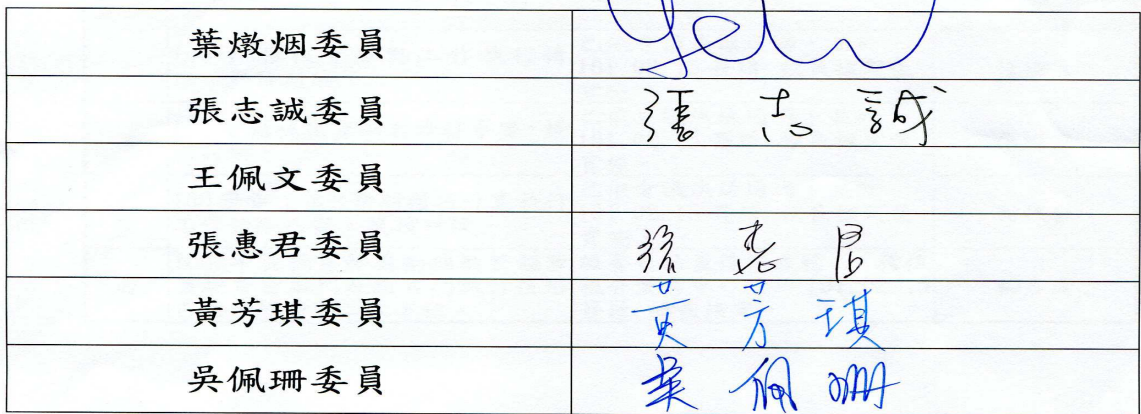 葉燉烟委員
張志誠委員 張志誠
王佩文委員
張惠君委員 張惠君
黃芳琪委員 黃芳琪
吳佩珊委員 吳佩珊